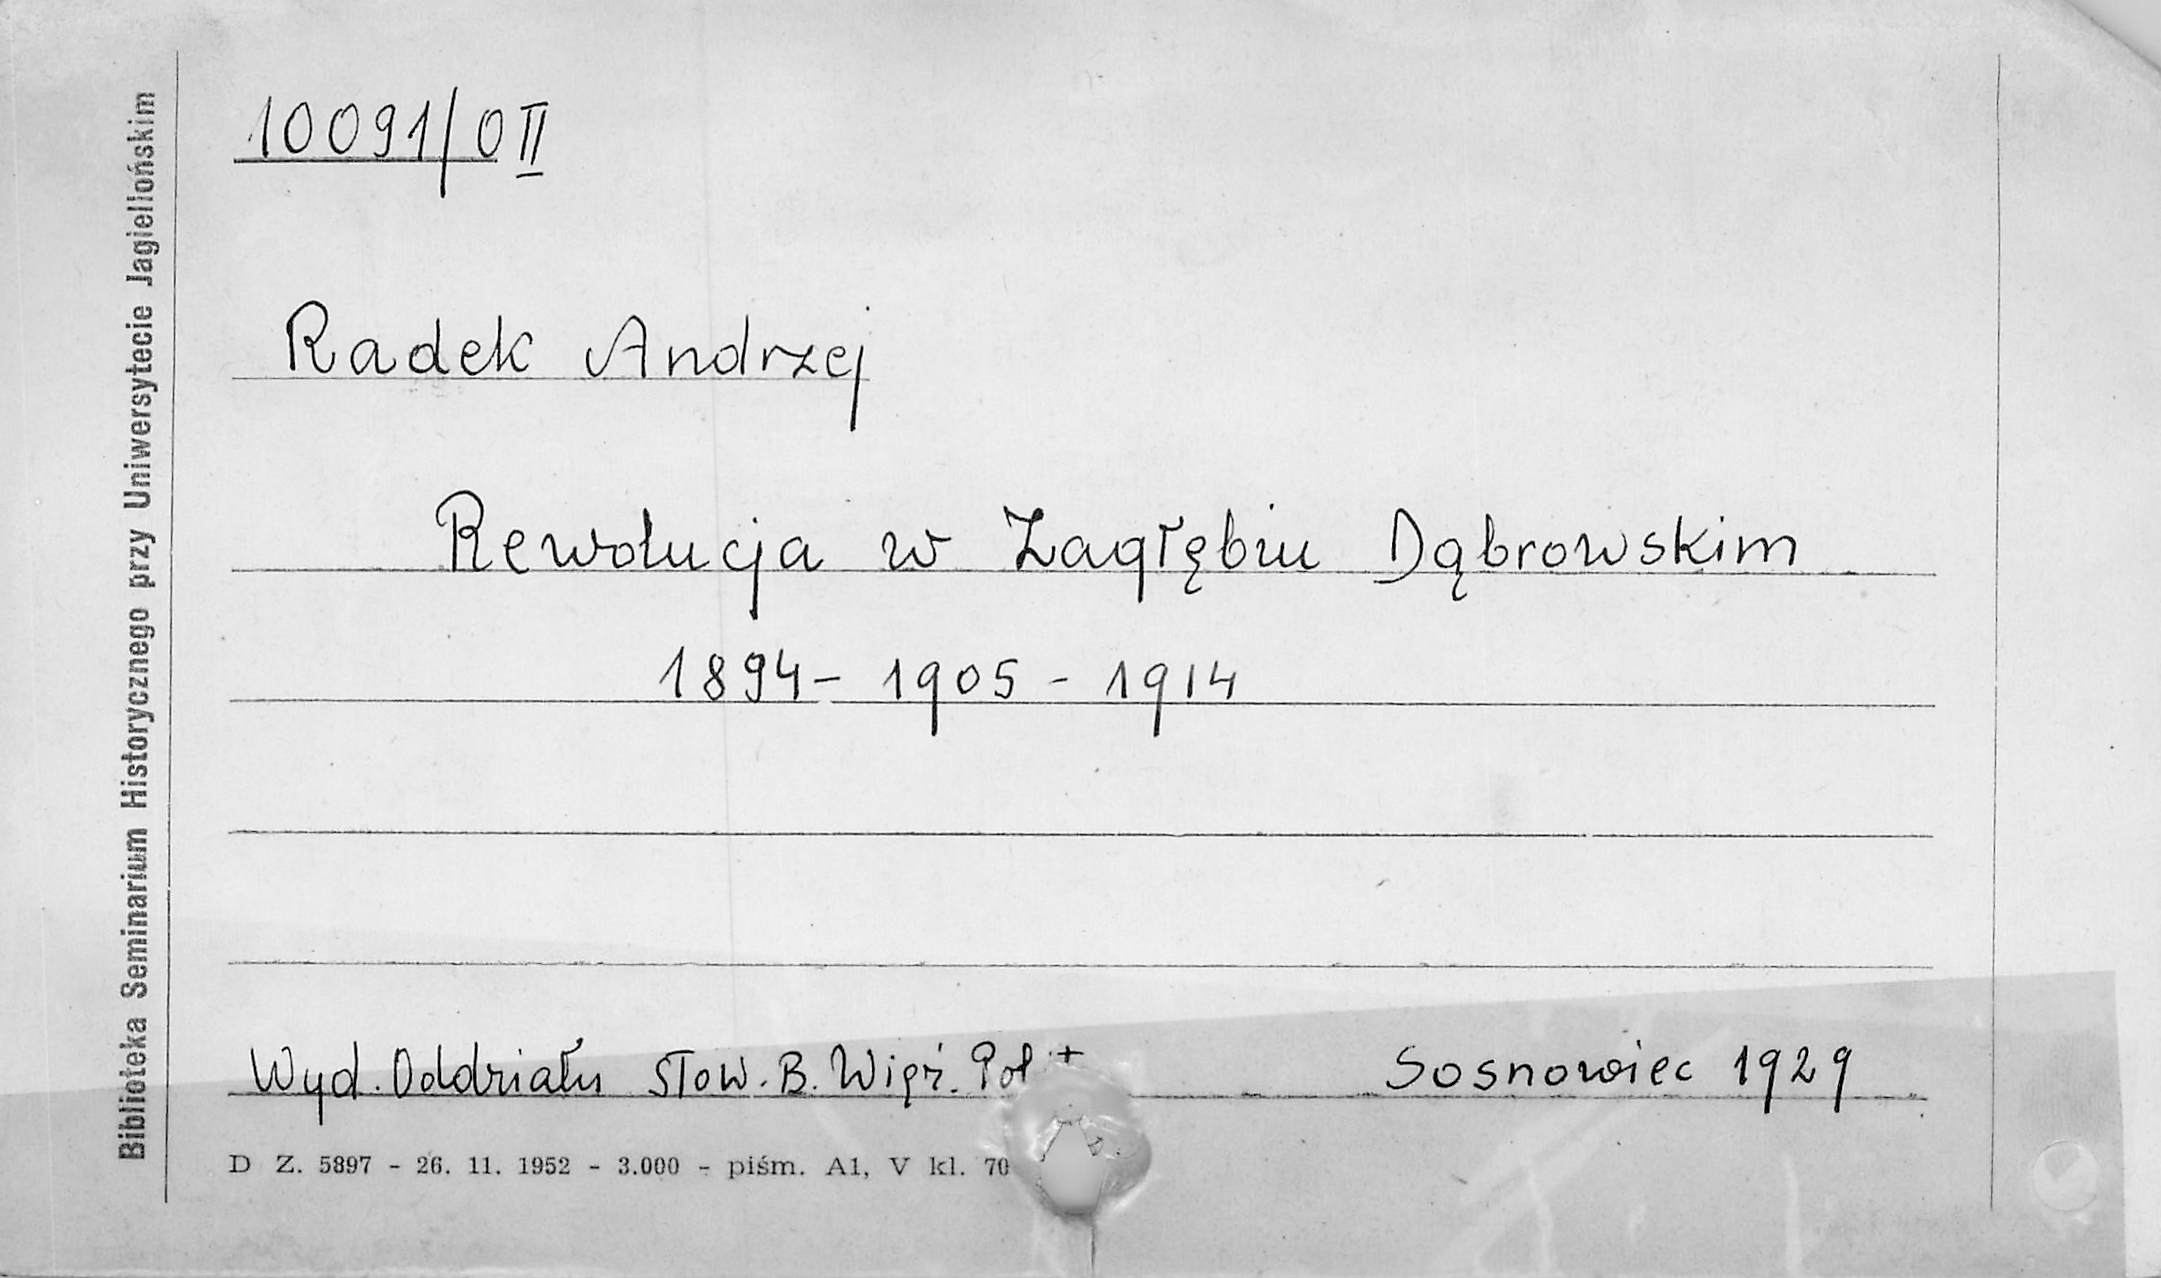 10091/0 II
Radek Andrzej
Rewolucja w Zagłębiu Dąbrowskim
1894 - 1905 - 1914
Wyd. Oddziału Stow. B. Więź. Polit Sosnowiec 1929
D Z. 5897 - 26. 11. 1952 - 3.000 - piśm. A1, V kl. 70
Biblioteka Seminarium Historycznego przy Uniwersytecie Jagiellońskim